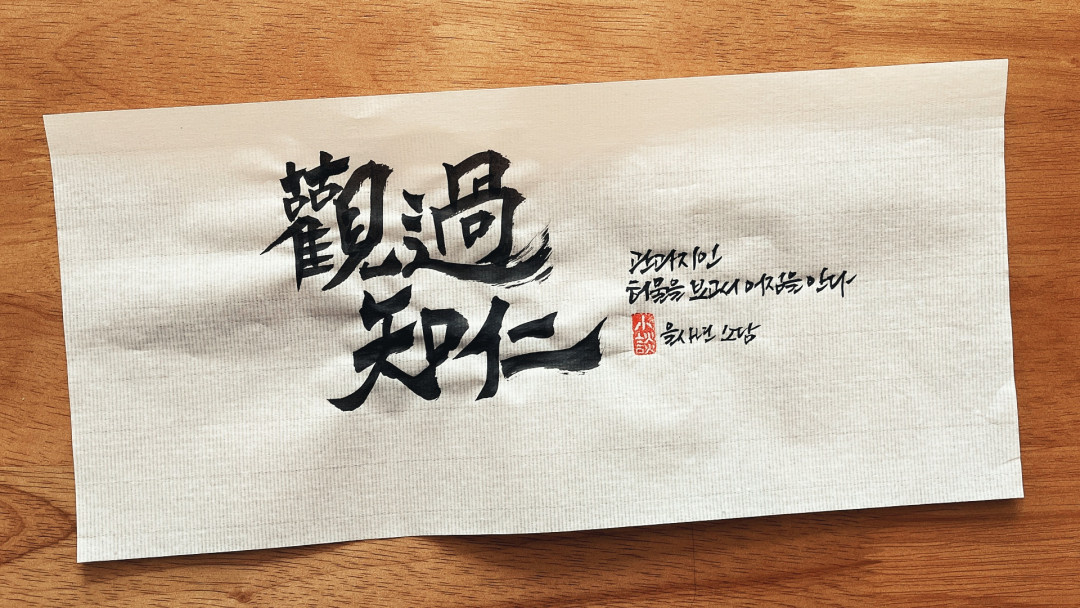 觀過
知仁
관과지인
허물을 보고서 어짊을 안다
小談
을사년 소담